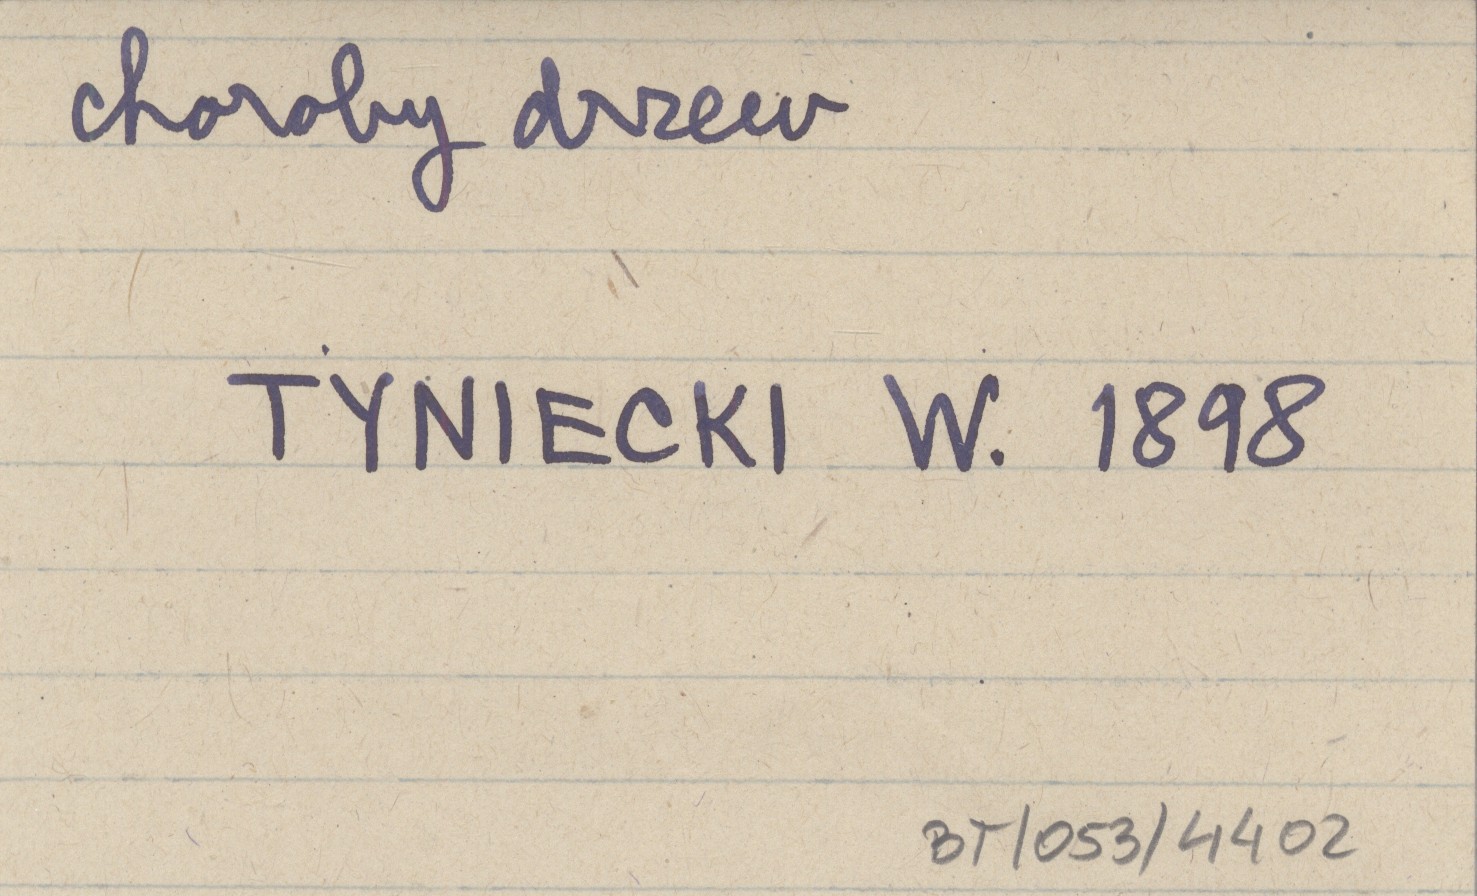 choroby drzew
TYNIECKI W. 1898
BT/053/4402